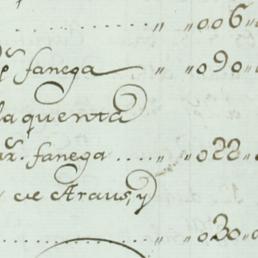 ........ " " 006 "
pr. fanega " " 090 "
la quenta
ar. fanega .... " " 022 "
de Araus, y
........ " " 030 "